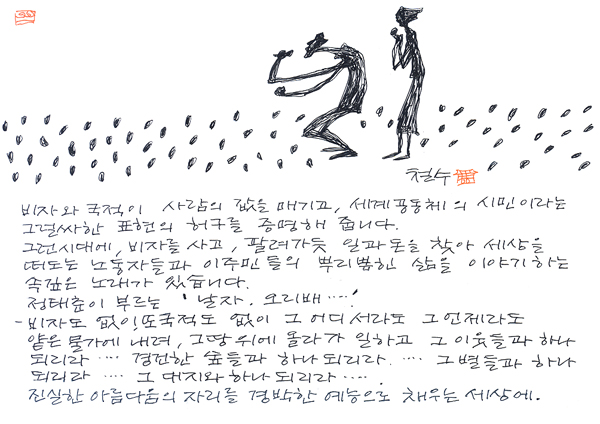 철수
비자와 국적이 사람의 값을 매기고, 세계공동체의 시민이라는
그럴싸한 표현의 허구를 증명해 줍니다.
그런시대에, 비자를 사고, 팔려가듯 일과돈을 찾아 세상을
떠도는 노동자들과 이주민들의 뿌리뽑힌 삶을 이야기하는
속깊은 노래가 있습니다.
정태춘이 부르는 '날자. 오리배….'
- 비자도 없이 또 국적도 없이 그 어디서라도 그 언제라도
얕은 물가에 내려, 그땅위에 올라가 일하고 그 이웃들과 하나
되리라 …. 경건한 숲들과 하나되리라. …. 그별들과 하나
되리라 …. 그 대지와 하나 되리라 ….
진실한 아름다움의 자리를 경박한 예능으로 채우는 세상에.